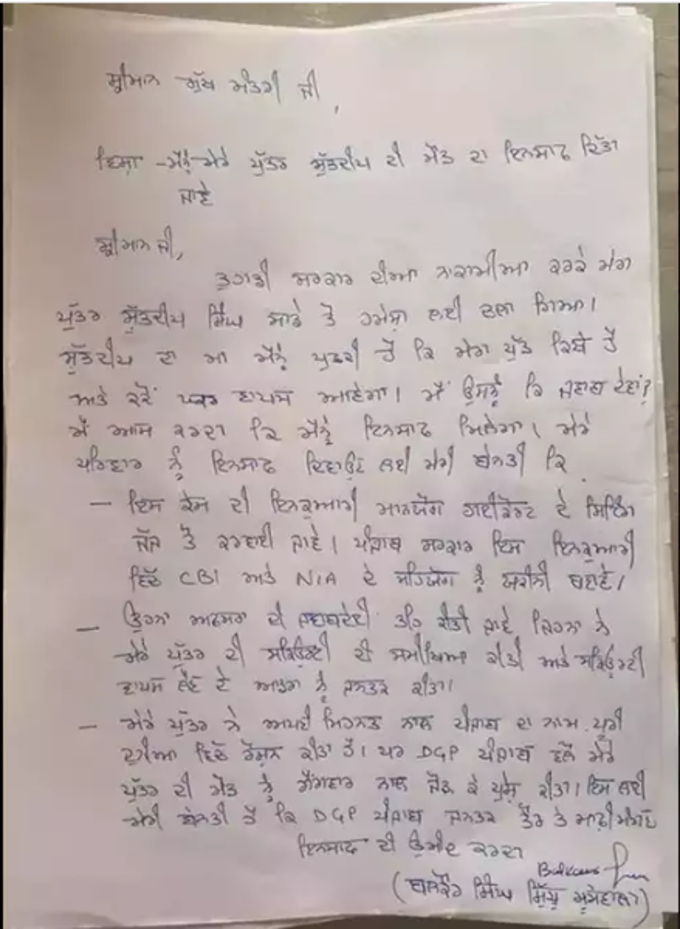 ਸ਼੍ਰੀਮਾਨ ਮੁੱਖ ਮੰਤਰੀ ਜੀ,
ਵਿਸ਼ਾ - ਮੈਨੂੰ ਮੇਰੇ ਪੁੱਤਰ ਸ਼ੁੱਭਦੀਪ ਦੀ ਮੌਤ ਦਾ ਇਨਸਾਫ ਦਿੱਤਾ
ਜਾਵੇ
ਸ਼੍ਰੀਮਾਨ ਜੀ,
ਤੁਹਾਡੀ ਸਰਕਾਰ ਦੀਆ ਨਾਕਾਮੀਆ ਕਰਕੇ ਮੇਰਾ
ਪੁੱਤਰ ਸ਼ੁੱਭਦੀਪ ਸਿੰਘ ਸਾਡੇ ਤੋ ਹਮੇਸ਼ਾ ਲਈ ਚਲਾ ਗਿਆ।
ਸ਼ੁੱਭਦੀਪ ਦਾ ਮਾ ਮੈਨੂੰ ਪੁਛਦੀ ਹੈ ਕਿ ਮੇਰਾ ਪੁੱਤ ਕਿਥੇ ਹੈ
ਅਤੇ ਕਦੋਂ ਘਰ ਵਾਪਸ ਆਵੇਗਾ। ਮੈਂ ਉਸਨੂੰ ਕਿ ਜਵਾਬ ਦੇਵਾਂ?
ਮੈਂ ਆਸ ਕਰਦਾ ਕਿ ਮੈਨੂੰ ਇਨਸਾਫ ਮਿਲੇਗਾ। ਮੇਰੇ
ਪਰਿਵਾਰ ਨੂੰ ਇਨਸਾਫ ਦਿਵਾਉਣ ਲਈ ਮੇਰੀ ਬੇਨਤੀ ਕਿ
- ਇਸ ਕੇਸ ਦੀ ਇਨਕੁਆਰੀ ਮਾਨਯੋਗ ਹਾਈਕੋਰਟ ਦੇ ਸਿਟਿੰਗ
ਜੱਜ ਤੋਂ ਕਰਵਾਈ ਜਾਵੇ। ਪੰਜਾਬ ਸਰਕਾਰ ਇਸ ਇਨਕੁਆਰੀ
ਵਿਚ CBI ਅਤੇ NIA ਦੇ ਸਹਿਯੋਗ ਨੂੰ ਯਕੀਨੀ ਬਣਾਵੇ।
- ਉਹਨਾ ਅਫਸਰਾ ਦੀ ਜਵਾਬਦੇਹੀ ਤਹਿ ਕੀਤੀ ਜਾਵੇ ਜਿਹਨਾ ਨੇ
ਮੇਰੇ ਪੁੱਤਰ ਦੀ ਸਕਿਉਰਟੀ ਦੀ ਸਮੀਖਿਆ ਕੀਤੀ ਅਤੇ ਸਕਿਉਰਟੀ
ਵਾਪਸ ਲੈਣ ਦੇ ਆਡਰਾ ਨੂੰ ਜਨਤਕ ਕੀਤਾ।
- ਮੇਰੇ ਪੁੱਤਰ ਨੇ ਆਪਣੀ ਮਿਹਨਤ ਨਾਲ ਪੰਜਾਬ ਦਾ ਨਾਮ ਪੂਰੀ
ਦੁਨੀਆ ਵਿਚ ਰੌਸ਼ਨ ਕੀਤਾ ਹੈ। ਪਰ DGP ਪੰਜਾਬ ਵਲੋਂ ਮੇਰੇ
ਪੁੱਤਰ ਦੀ ਮੌਤ ਨੂੰ ਗੈਂਗਵਾਰ ਨਾਲ ਜੋੜ ਕੇ ਪੇਸ਼ ਕੀਤਾ। ਇਸ ਲਈ
ਮੇਰੀ ਬੇਨਤੀ ਹੈ ਕਿ DGP ਪੰਜਾਬ ਜਨਤਕ ਤੌਰ ਤੇ ਮਾਫੀ ਮੰਗਣ
ਇਨਸਾਫ ਦੀ ਉਮੀਦ ਕਰਦਾ
(ਬਲਕੌਰ ਸਿੰਘ ਸਿੱਧੂ ਮੂਸੇਵਾਲਾ)